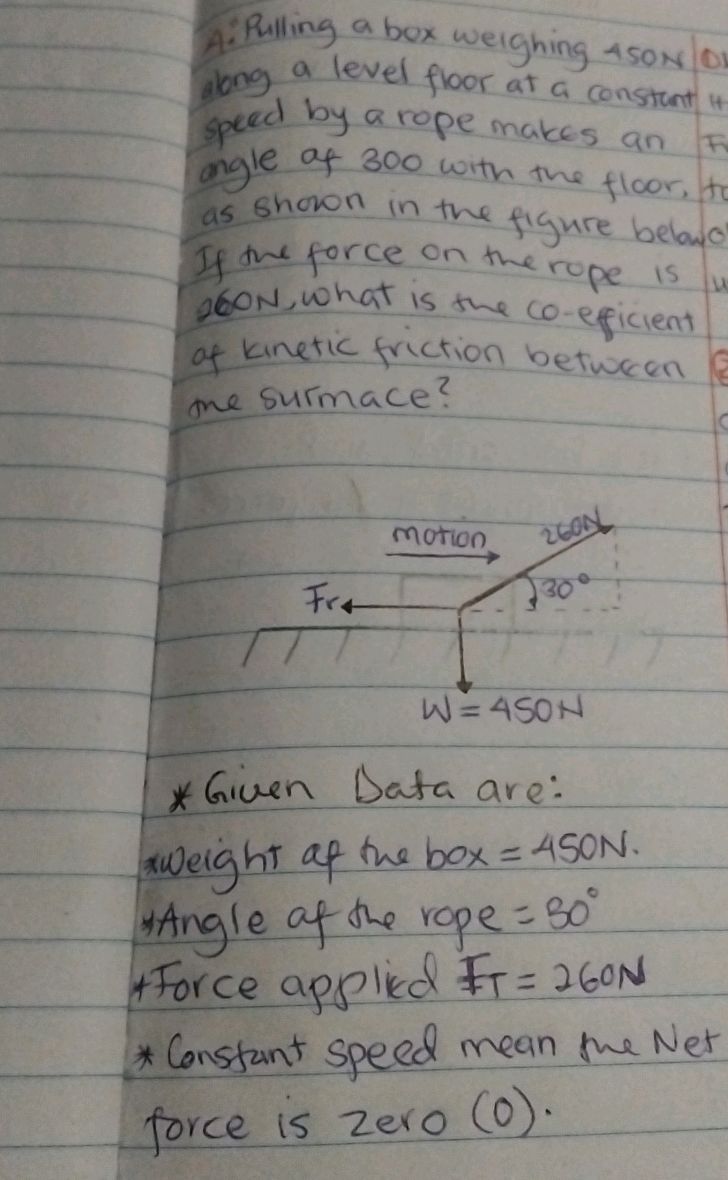 A: Pulling a box weighing 450N
along a level floor at a constant
speed by a rope makes an
angle of 300 with the floor,
as shown in the figure below
If the force on the rope is
260N, what is the co-efficient
of kinetic friction between
the surmace?
motion
260N
30°
Fr
W = 450N
* Given Data are:
*weight of the box = 450N.
*Angle of the rope = 30°
*Force applied FT = 260N
* Constant speed mean the Net
force is zero (0).